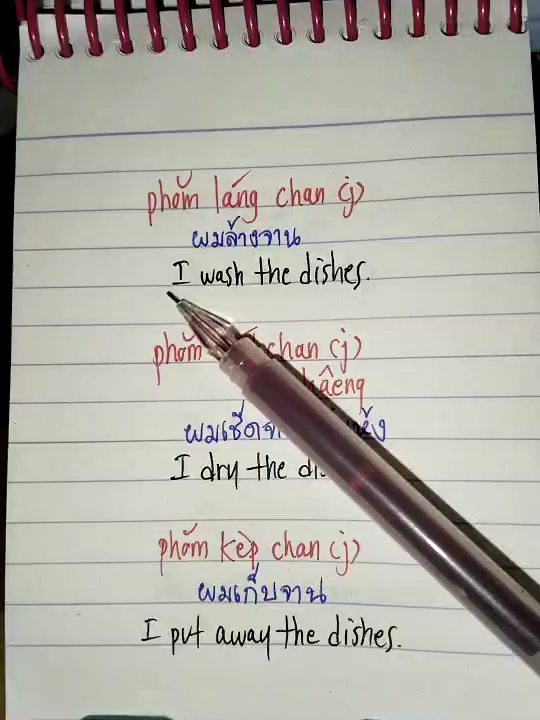 phŏm láng chan (j)
ผมล้างจาน
I wash the dishes.
phŏm chan (j)
hâeng
ผมเช็ดจ
I dry the
phŏm kèp chan (j)
ผมเก็บจาน
I put away the dishes.